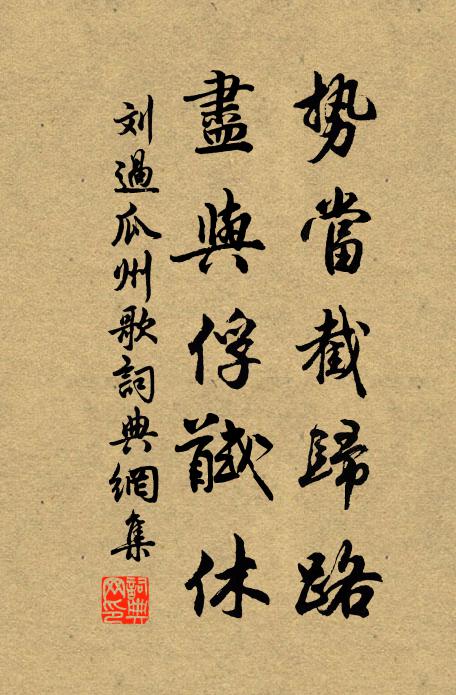 势當截歸路
盡與俘馘休
刘過瓜州歌詞典網集
詞典網印